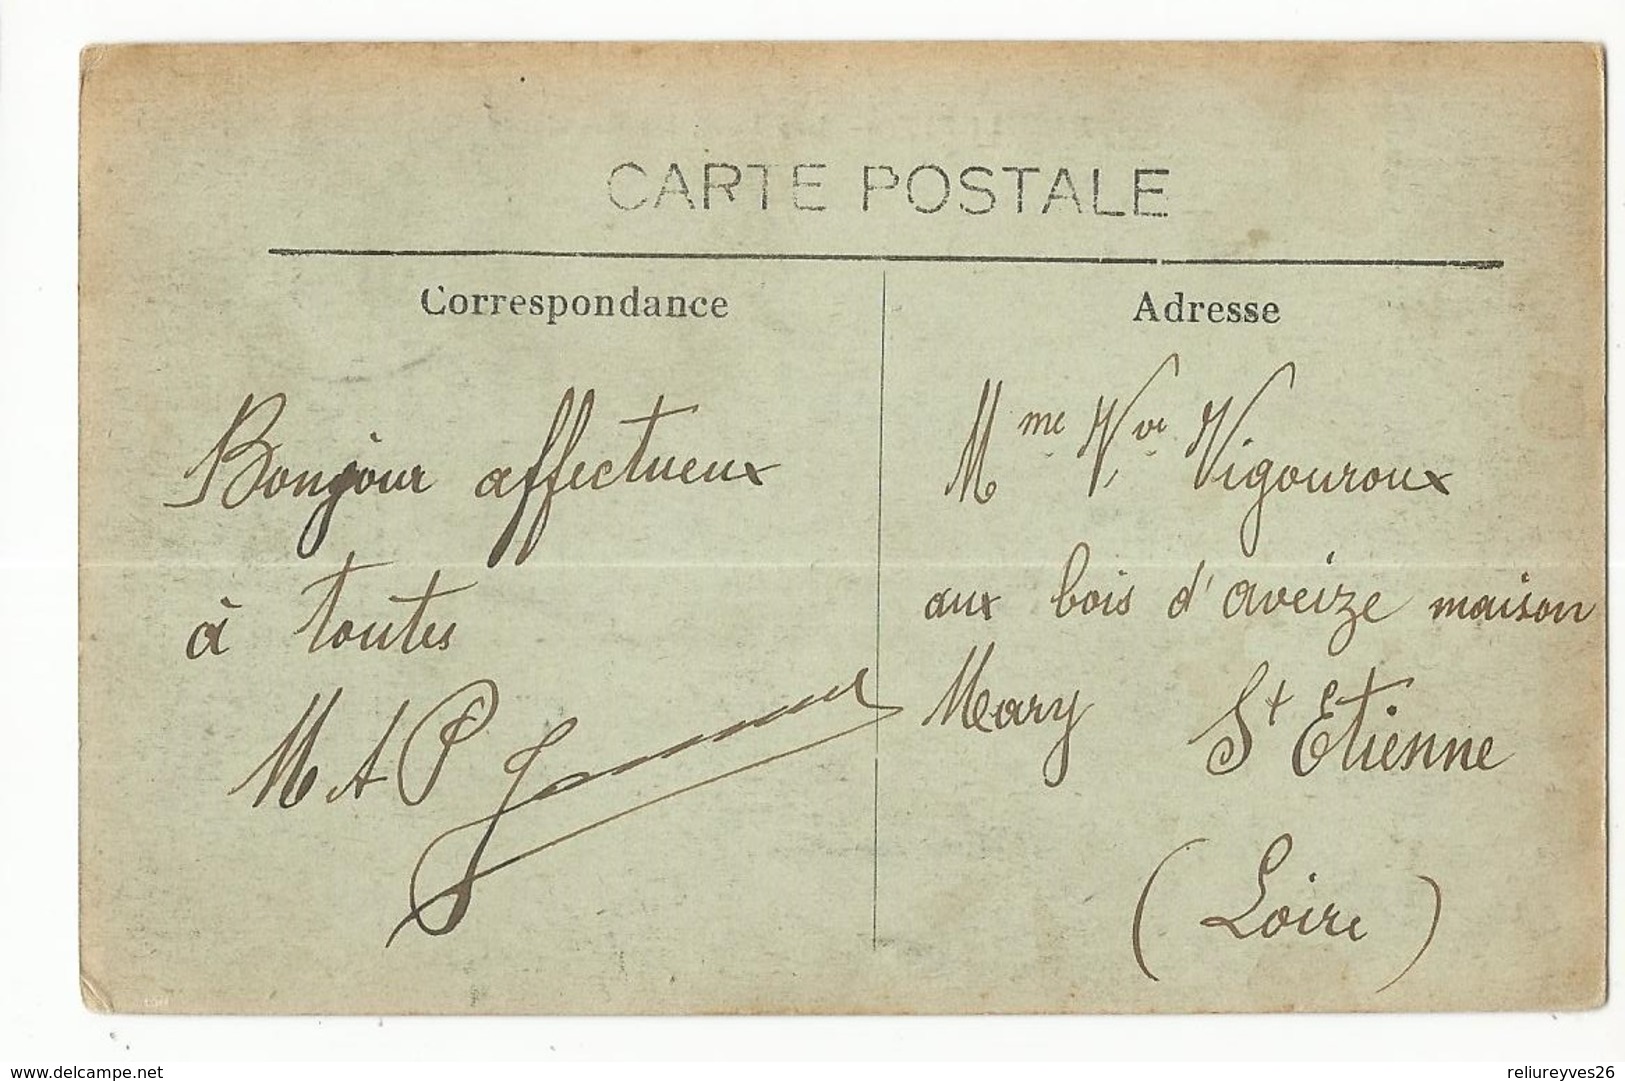 CARTE POSTALE
Correspondance
Bonjour affectueux
à toutes
M A P
Adresse
Mme Vve Vigouroux
aux bois d'aveize maison
Mary St Etienne
(Loire)
www.delcampe.net
reliureyves26